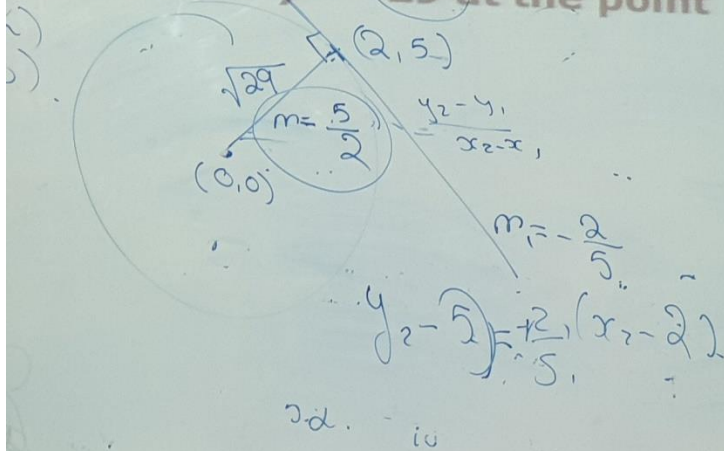 at the point
(2,5)
√29
m = 5/2
= y₂ - y₁ / x₂ - x₁
(0,0)
m₁ = - 2/5
y₂ - 5 = -2/5 (x₂ - 2)